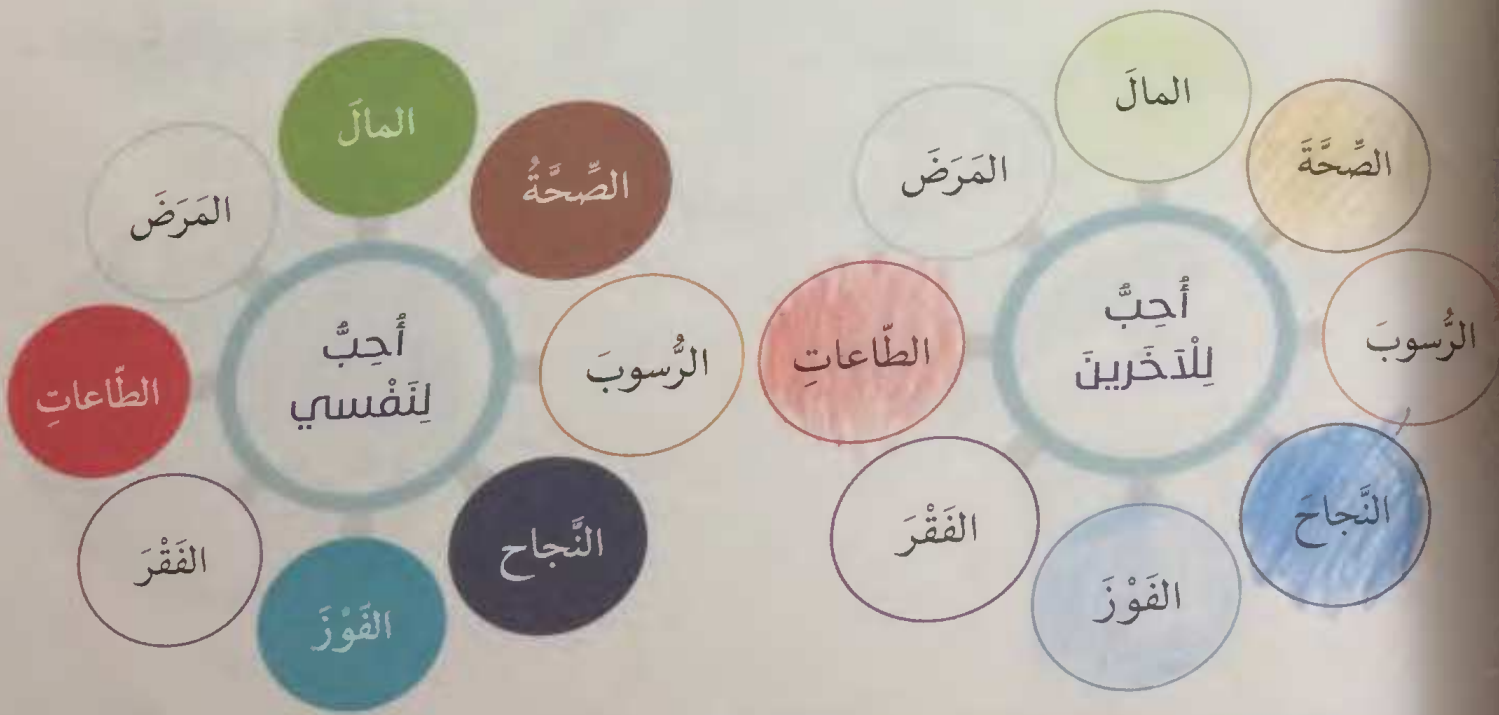 أُحِبُّ
لِلْآخَرينَ
المالَ
الصِّحَّةَ
الرُّسوبَ
النَّجاحَ
الفَوْزَ
الفَقْرَ
الطّاعاتِ
المَرَضَ
أُحِبُّ
لِنَفْسي
المالَ
الصِّحَّةُ
الرُّسوبَ
النَّجاح
الفَوْزَ
الفَقْرَ
الطّاعاتِ
المَرَضَ